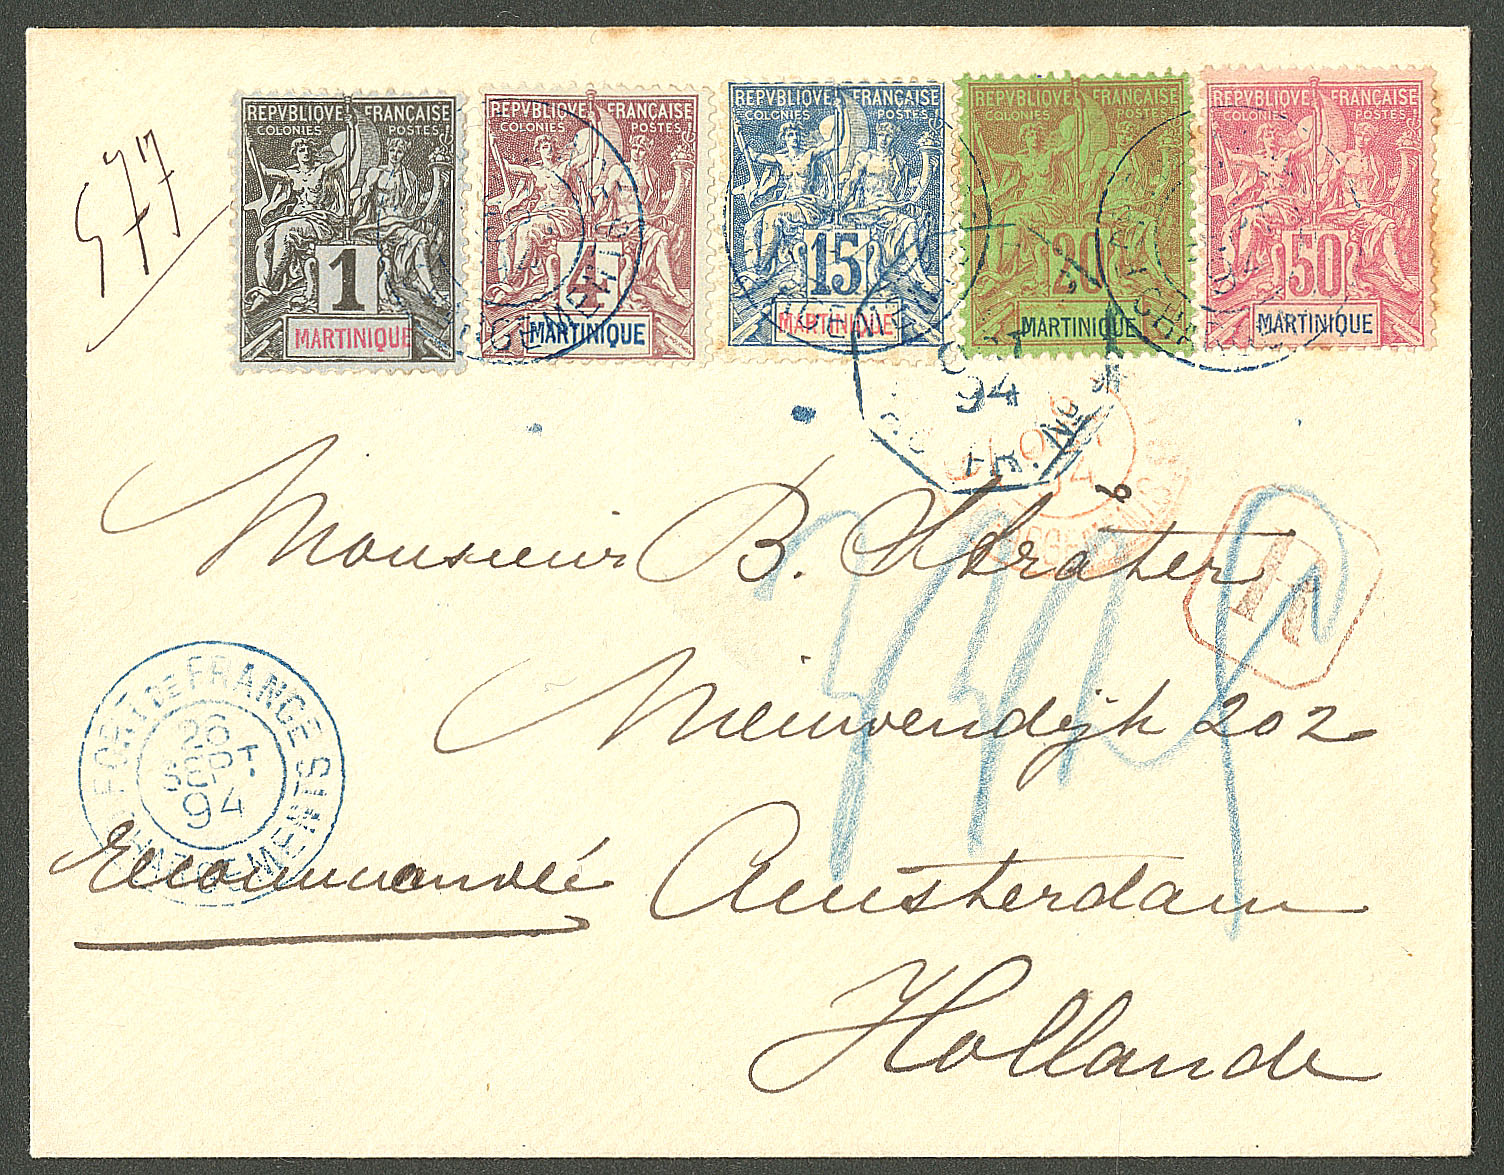 577
REPVBLIQVE FRANÇAISE
COLONIES POSTES
1
MARTINIQUE
REPVBLIQVE FRANÇAISE
COLONIES POSTES
4
MARTINIQUE
REPVBLIQVE FRANÇAISE
COLONIES POSTES
15
MARTINIQUE
REPVBLIQVE FRANÇAISE
COLONIES POSTES
20
MARTINIQUE
REPVBLIQVE FRANÇAISE
COLONIES POSTES
50
MARTINIQUE
94
Monsieur B. Strater
R
Nieuwendijk 202
FORT DE FRANCE
26
SEPT.
94
CHARGEMENTS
Recommandée
Amsterdam
Hollande